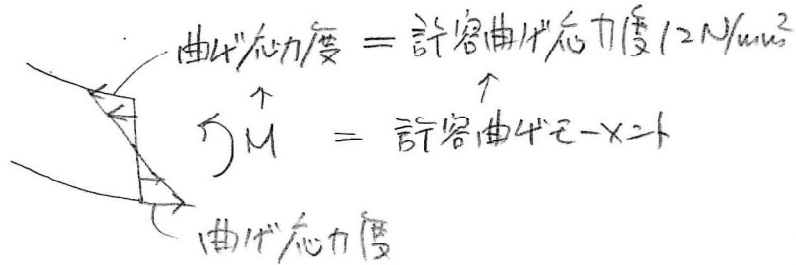 曲げ応力度 = 許容曲げ応力度12N/mm²
↑ ↑
M = 許容曲げモーメント
曲げ応力度